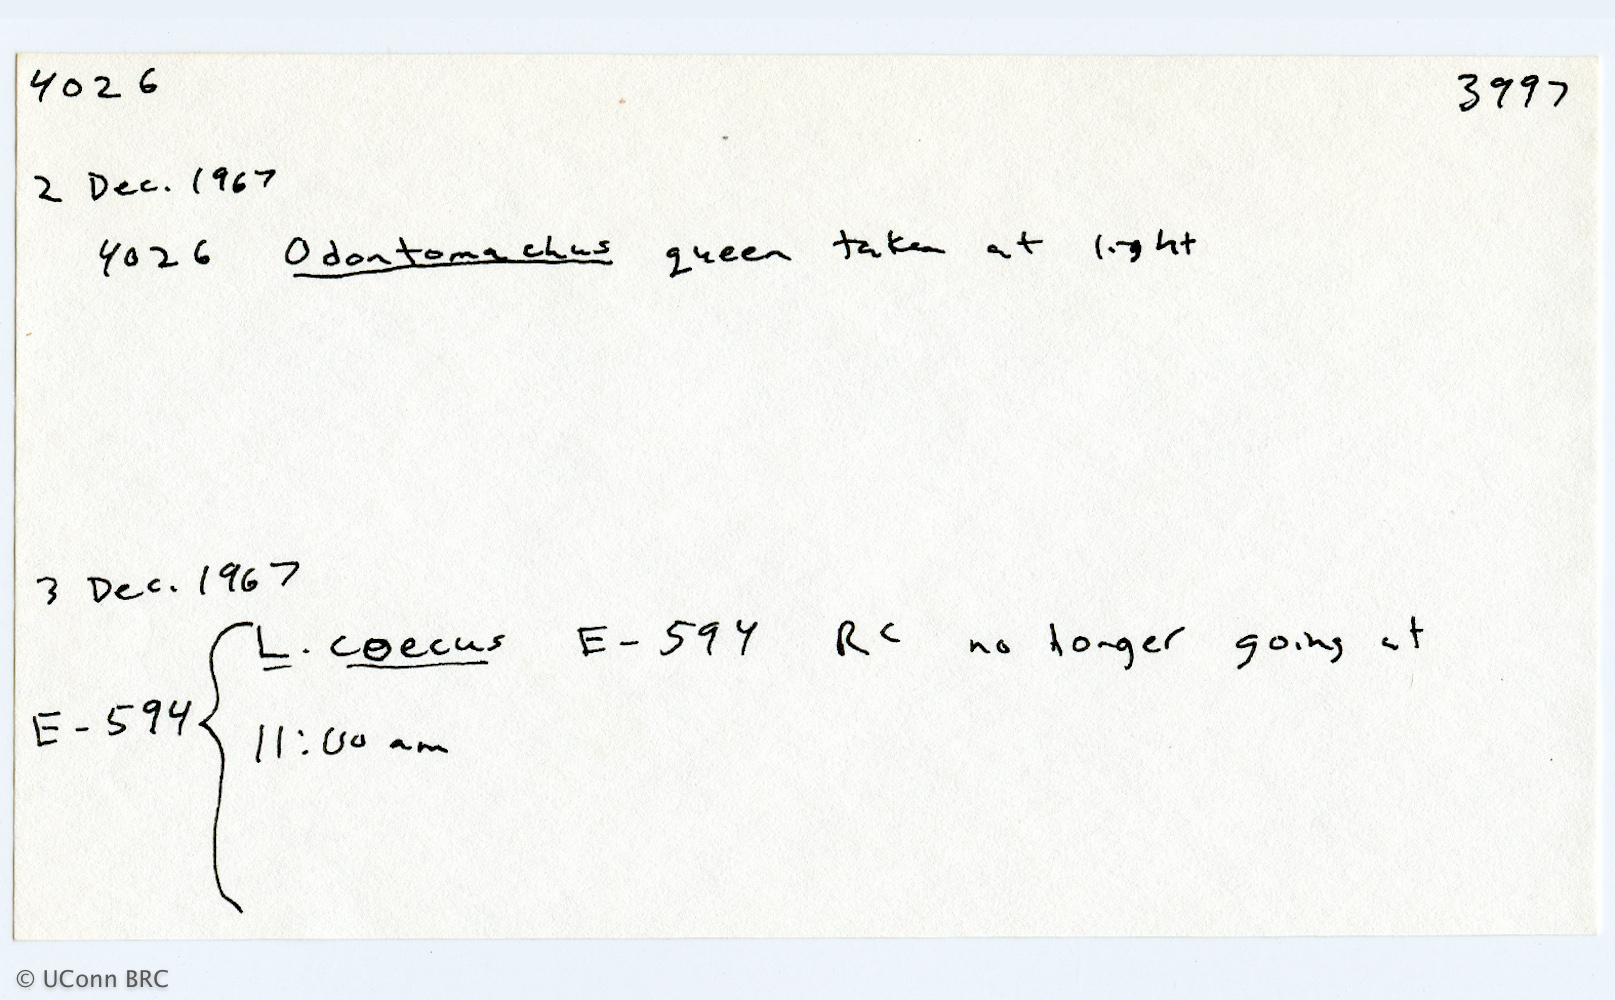 4026 3997
2 Dec. 1967
4026 Odontomachus queen taken at light
3 Dec. 1967
L. coecus E-594 RC no longer going at
E-594
11:00 am
© UConn BRC